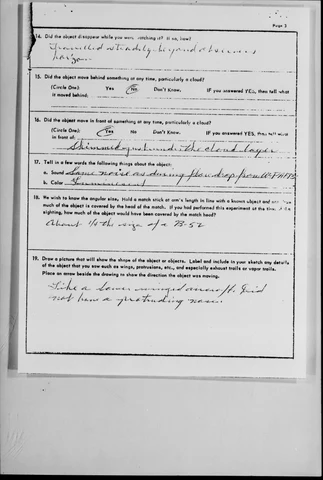 Page 3
14. Did the object disappear while you were watching it? If so, how?
Travelled steadily beyond
horizon
15. Did the object move behind something at any time, particularly a cloud?
(Circle One): Yes No Don't Know. IF you answered YES, then tell what
it moved behind:
16. Did the object move in front of something at any time, particularly a cloud?
(Circle One): Yes No Don't Know. IF you answered YES, then tell what
in front of:
Skimmed just under the cloud layer
17. Tell in a few words the following things about the object:
a. Sound Same noise as during from
b. Color
18. We wish to know the angular size. Hold a match stick at arm's length in line with a known object and note how
much of the object is covered by the head of the match. If you had performed this experiment at the time of the
sighting, how much of the object would have been covered by the match head?
About the size of a B-52
19. Draw a picture that will show the shape of the object or objects. Label and include in your sketch any details
of the object that you saw such as wings, protrusions, etc., and especially exhaust trails or vapor trails.
Place an arrow beside the drawing to show the direction the object was moving.
Like a winged aircraft. Did
not have a protruding nose.